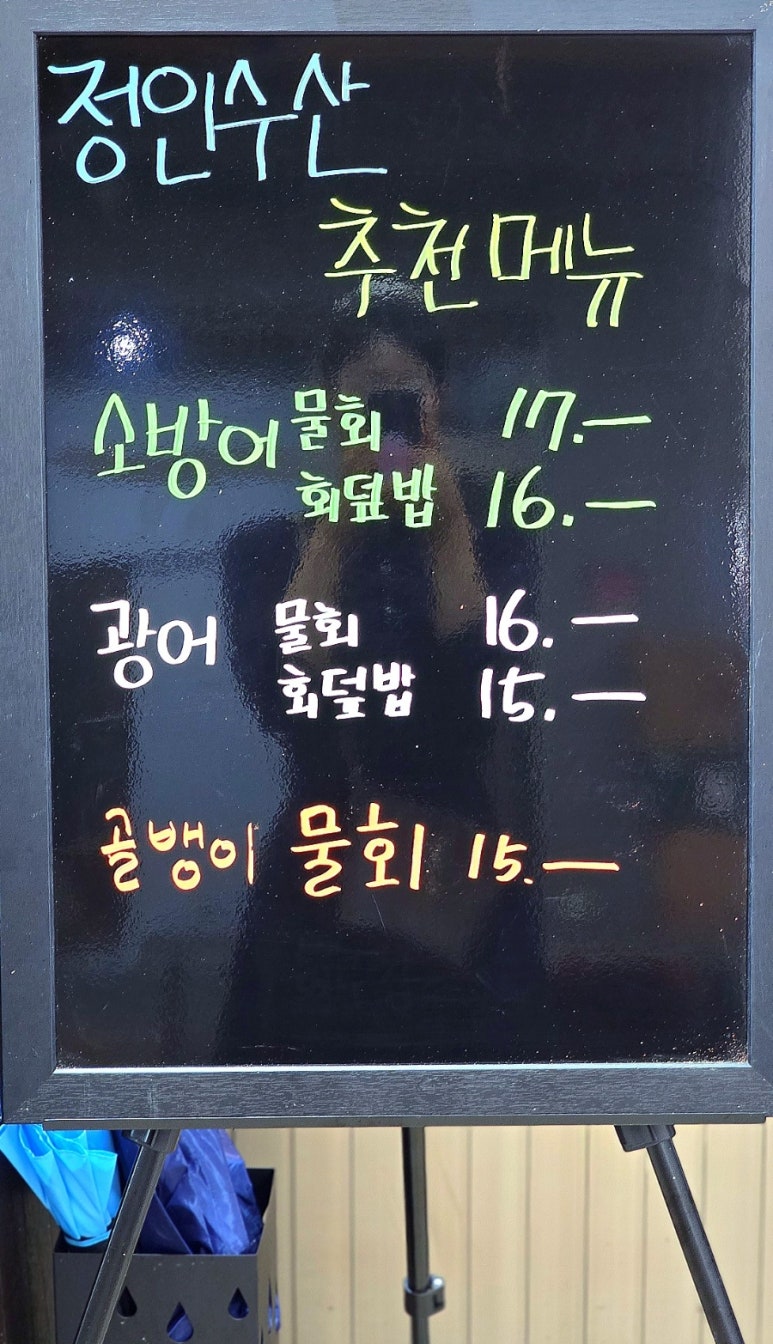 정인수산
추천메뉴
소방어 물회 17.-
회덮밥 16.-
광어 물회 16.-
회덮밥 15.-
골뱅이 물회 15.-